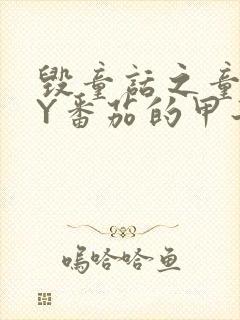 毁童话之童
Y番茄的甲
呜哈哈鱼